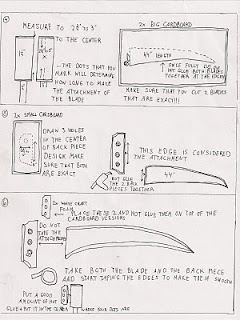 MEASURE TO 2¾" TO 3"
TO THE CENTER
2x BIG CARDBOARD
44" LENGTH
...THE DOTS THAT YOU
MARK WILL DETERMINE
HOW LONG TO MAKE
THE ATTACHMENT OF
THE BLADE
ONCE FULLY
HOT GLUE BOTH BLADES
TOGETHER AT THE
MAKE SURE THAT YOU CUT 2 BLADES
THAT ARE EXACT!!!
2x SMALL CARDBOARD
DRAW 3 HOLES
IN THE CENTER
OF BACK PIECE
DESIGN. MAKE
SURE THAT BOTH
ARE EXACT
THIS EDGE IS CONSIDERED
THE ATTACHMENT
44"
HOT GLUE
THE 2 BACK
PIECES TOGETHER
2x MORE CRAFT
FOAM
PLACE THESE 2 AND HOT GLUE THEM ON TOP OF THE
CARDBOARD VERSIONS
DO NOT
TAPE THE
ATTACHMENT
TAKE BOTH THE BLADE AND THE BACK PIECE
AND START TAPING THE EDGES TO MAKE THEM SMOOTH
PUT A GOOD
AMOUNT OF HOT
GLUE + PUT IT IN THE CENTER
WHERE YOUR DOTS ARE